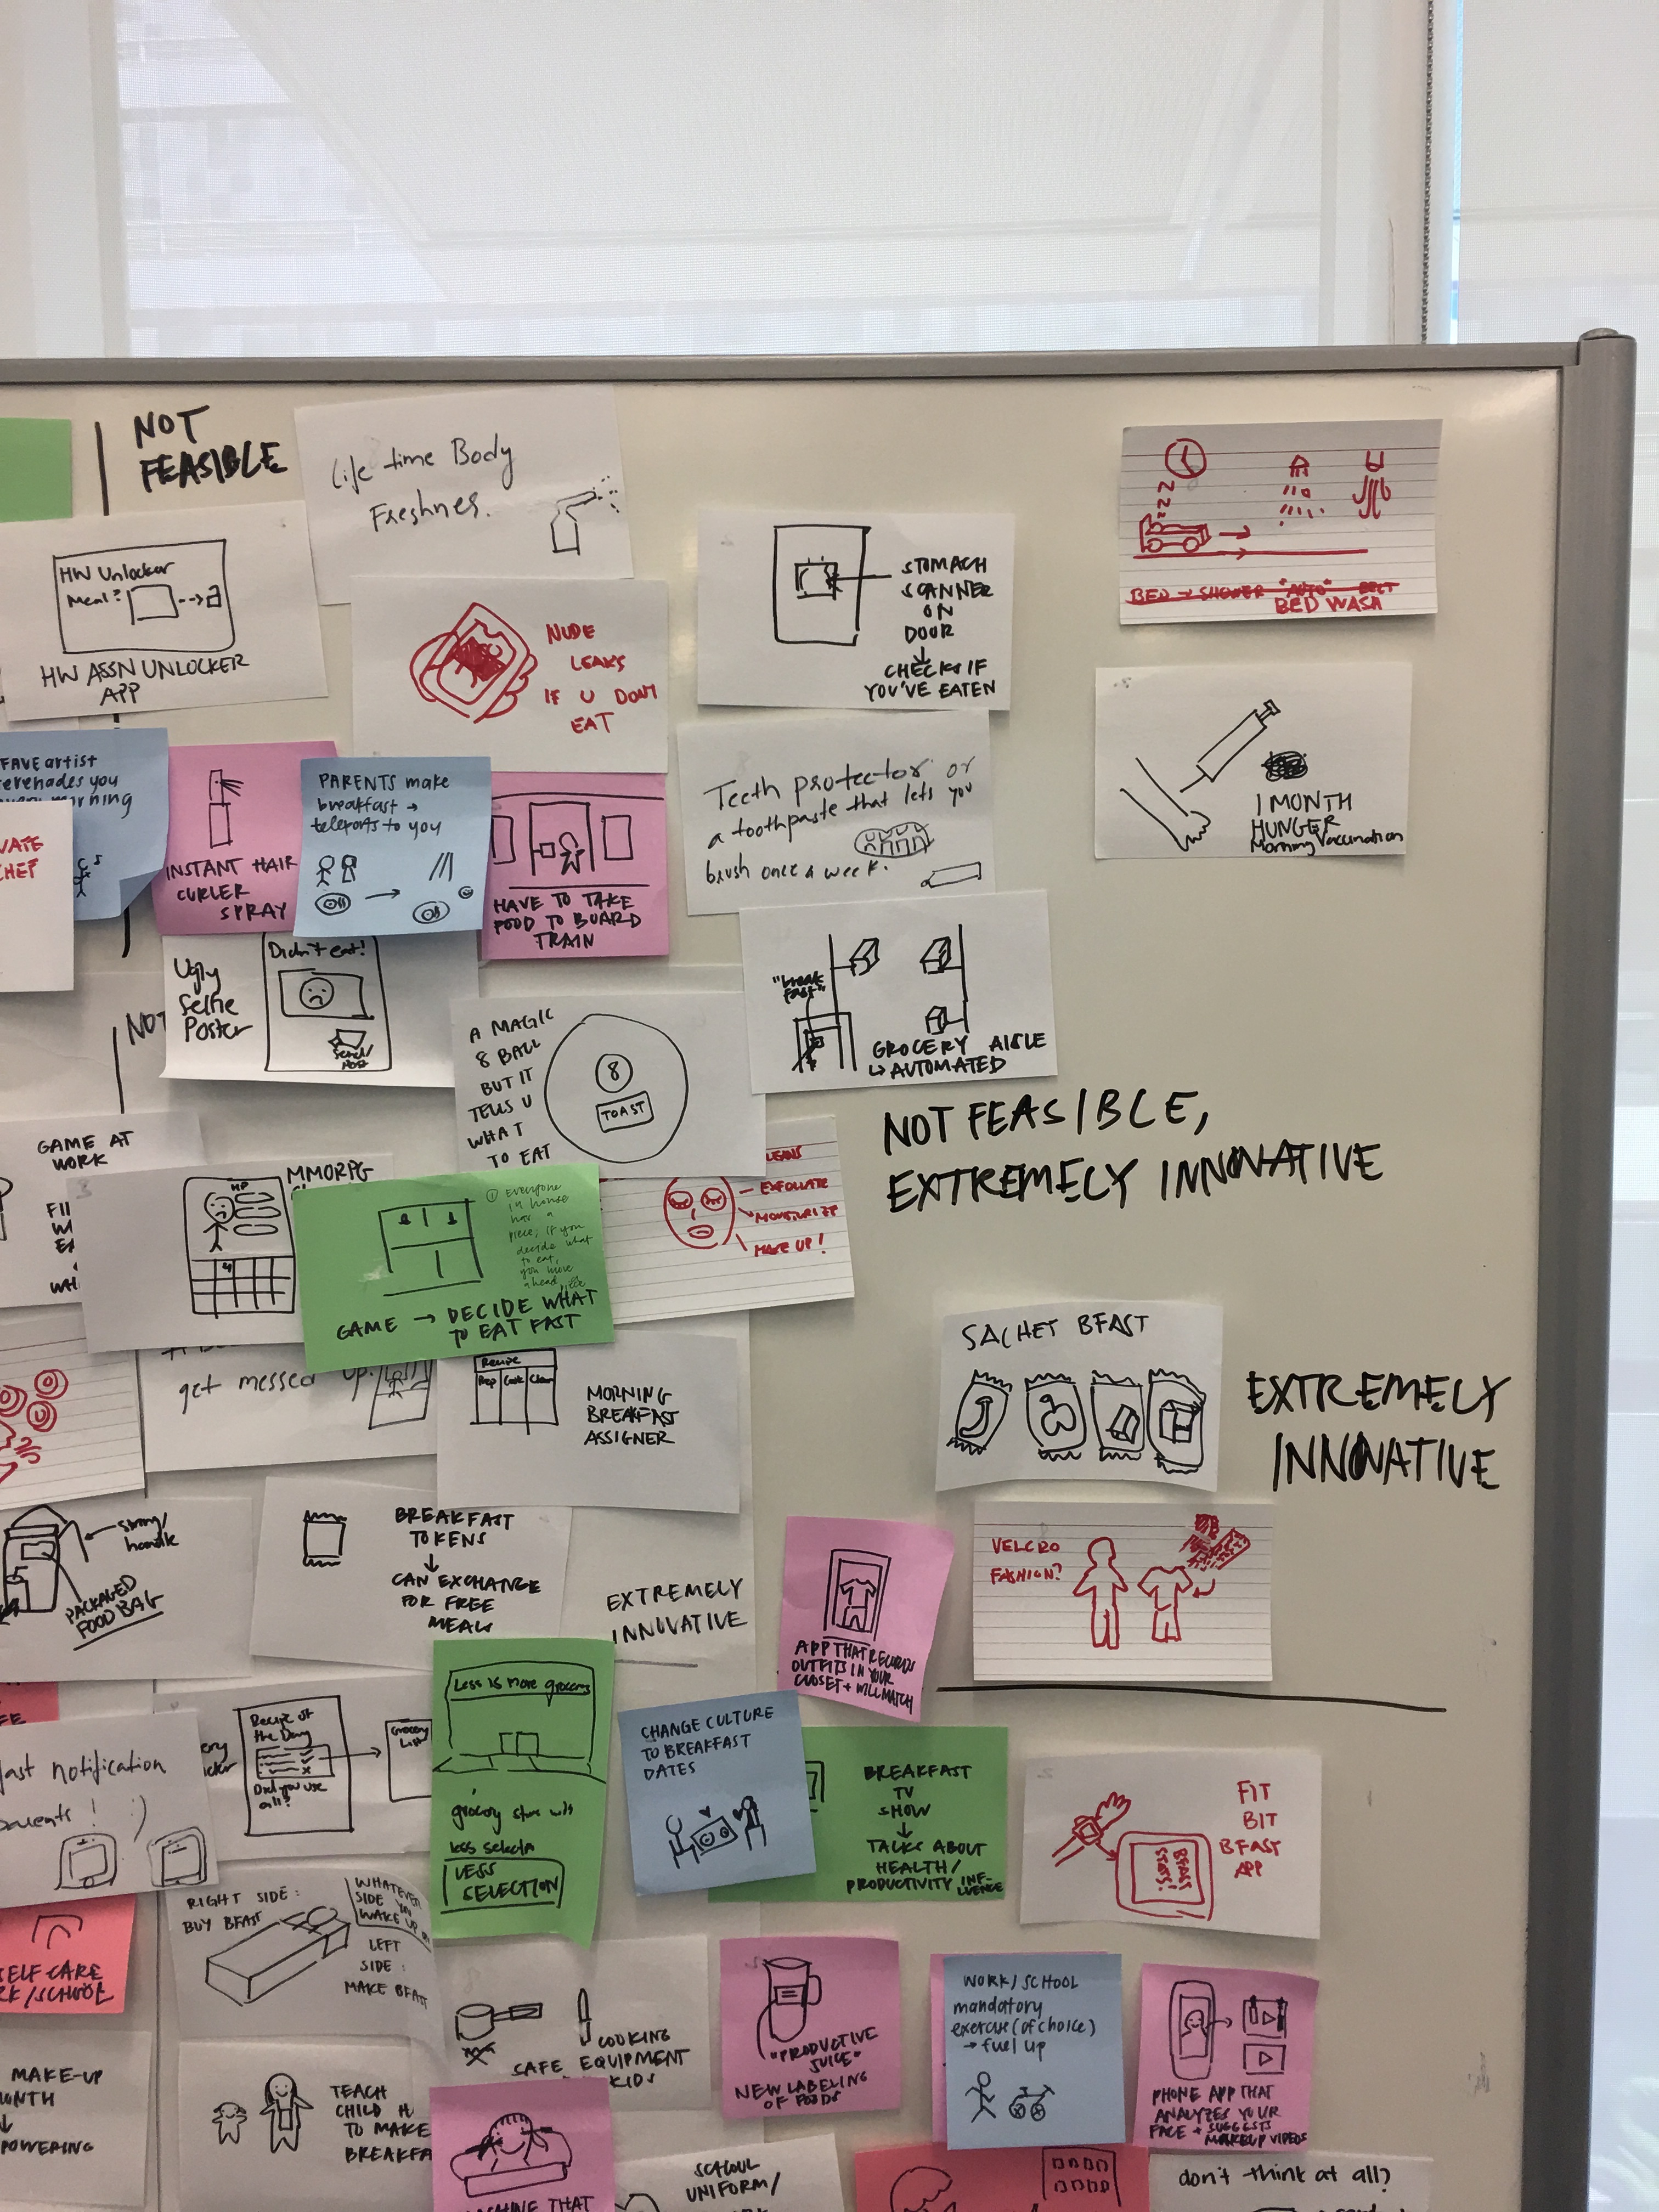 NOT
FEASIBLE
Life time Body
Freshnes.
HW Unlocker
Meal?
HW ASSN UNLOCKER
APP
NUDE
LEAKS
IF U DON'T
EAT
STOMACH
SCANNER
ON
DOOR
CHECKS IF
YOU'VE EATEN
BED → SHOWER "AUTO" BELT
BED WASH
1 MONTH
HUNGER
Morning Vaccination
FAVE artist
serenades you
every morning
INSTANT HAIR
CURLER
SPRAY
PARENTS make
breakfast →
teleports to you
HAVE TO TAKE
FOOD TO BOARD
TRAIN
Teeth protector or
a toothpaste that lets you
brush once a week.
Ugly
Selfie
Poster
Didn't eat!
Send/
NOT
A MAGIC
8 BALL
BUT IT
TELLS U
WHAT
TO EAT
8
TOAST
"break
fast"
GROCERY AISLE
↳ AUTOMATED
NOT FEASIBLE,
EXTREMELY INNOVATIVE
GAME AT
WORK
MMORPG
HP
① Everyone
in house
has a
piece; if you
decide what
to eat,
you move
ahead
GAME → DECIDE WHAT
TO EAT FAST
EXFOLIATE
MOISTURIZE
MAKE UP!
get messed up.
Recipe
Prep Cook Clean
MORNING
BREAKFAST
ASSIGNER
SACHET BFAST
EXTREMELY
INNOVATIVE
string/
handle
PACKAGED
FOOD BAG
BREAKFAST
TOKENS
↓
CAN EXCHANGE
FOR FREE
MEALS
EXTREMELY
INNOVATIVE
APP THAT RECORDS
OUTFITS IN YOUR
CLOSET + WILL MATCH
VELCRO
FASHION?
Recipe of
the Day
Did you use
all?
Grocery
List
Less is more grocers
grocery store with
less selectn
LESS
SELECTION
CHANGE CULTURE
TO BREAKFAST
DATES
BREAKFAST
TV
SHOW
↓
TALKS ABOUT
HEALTH/
PRODUCTIVITY INF-
LUENCE
FIT
BIT
BFAST
APP
BFAST
STATS!
fast notification
parents! :)
RIGHT SIDE:
BUY BFAST
WHATEVER
SIDE YOU
WAKE UP ON
LEFT
SIDE:
MAKE BFAST
SELF CARE
/SCHOOL
SAFE COOKING
EQUIPMENT
KIDS
"PRODUCTIVE
JUICE"
NEW LABELING
OF FOODS
WORK/SCHOOL
mandatory
exercise (of choice)
→ fuel up
PHONE APP THAT
ANALYZES YOUR
FACE + SUGGESTS
MAKEUP VIDEOS
MAKE-UP
MONTH
TEACH
CHILD H
TO MAKE
BREAKFA
MACHINE THAT
SCHOOL
UNIFORM/
don't think at all?